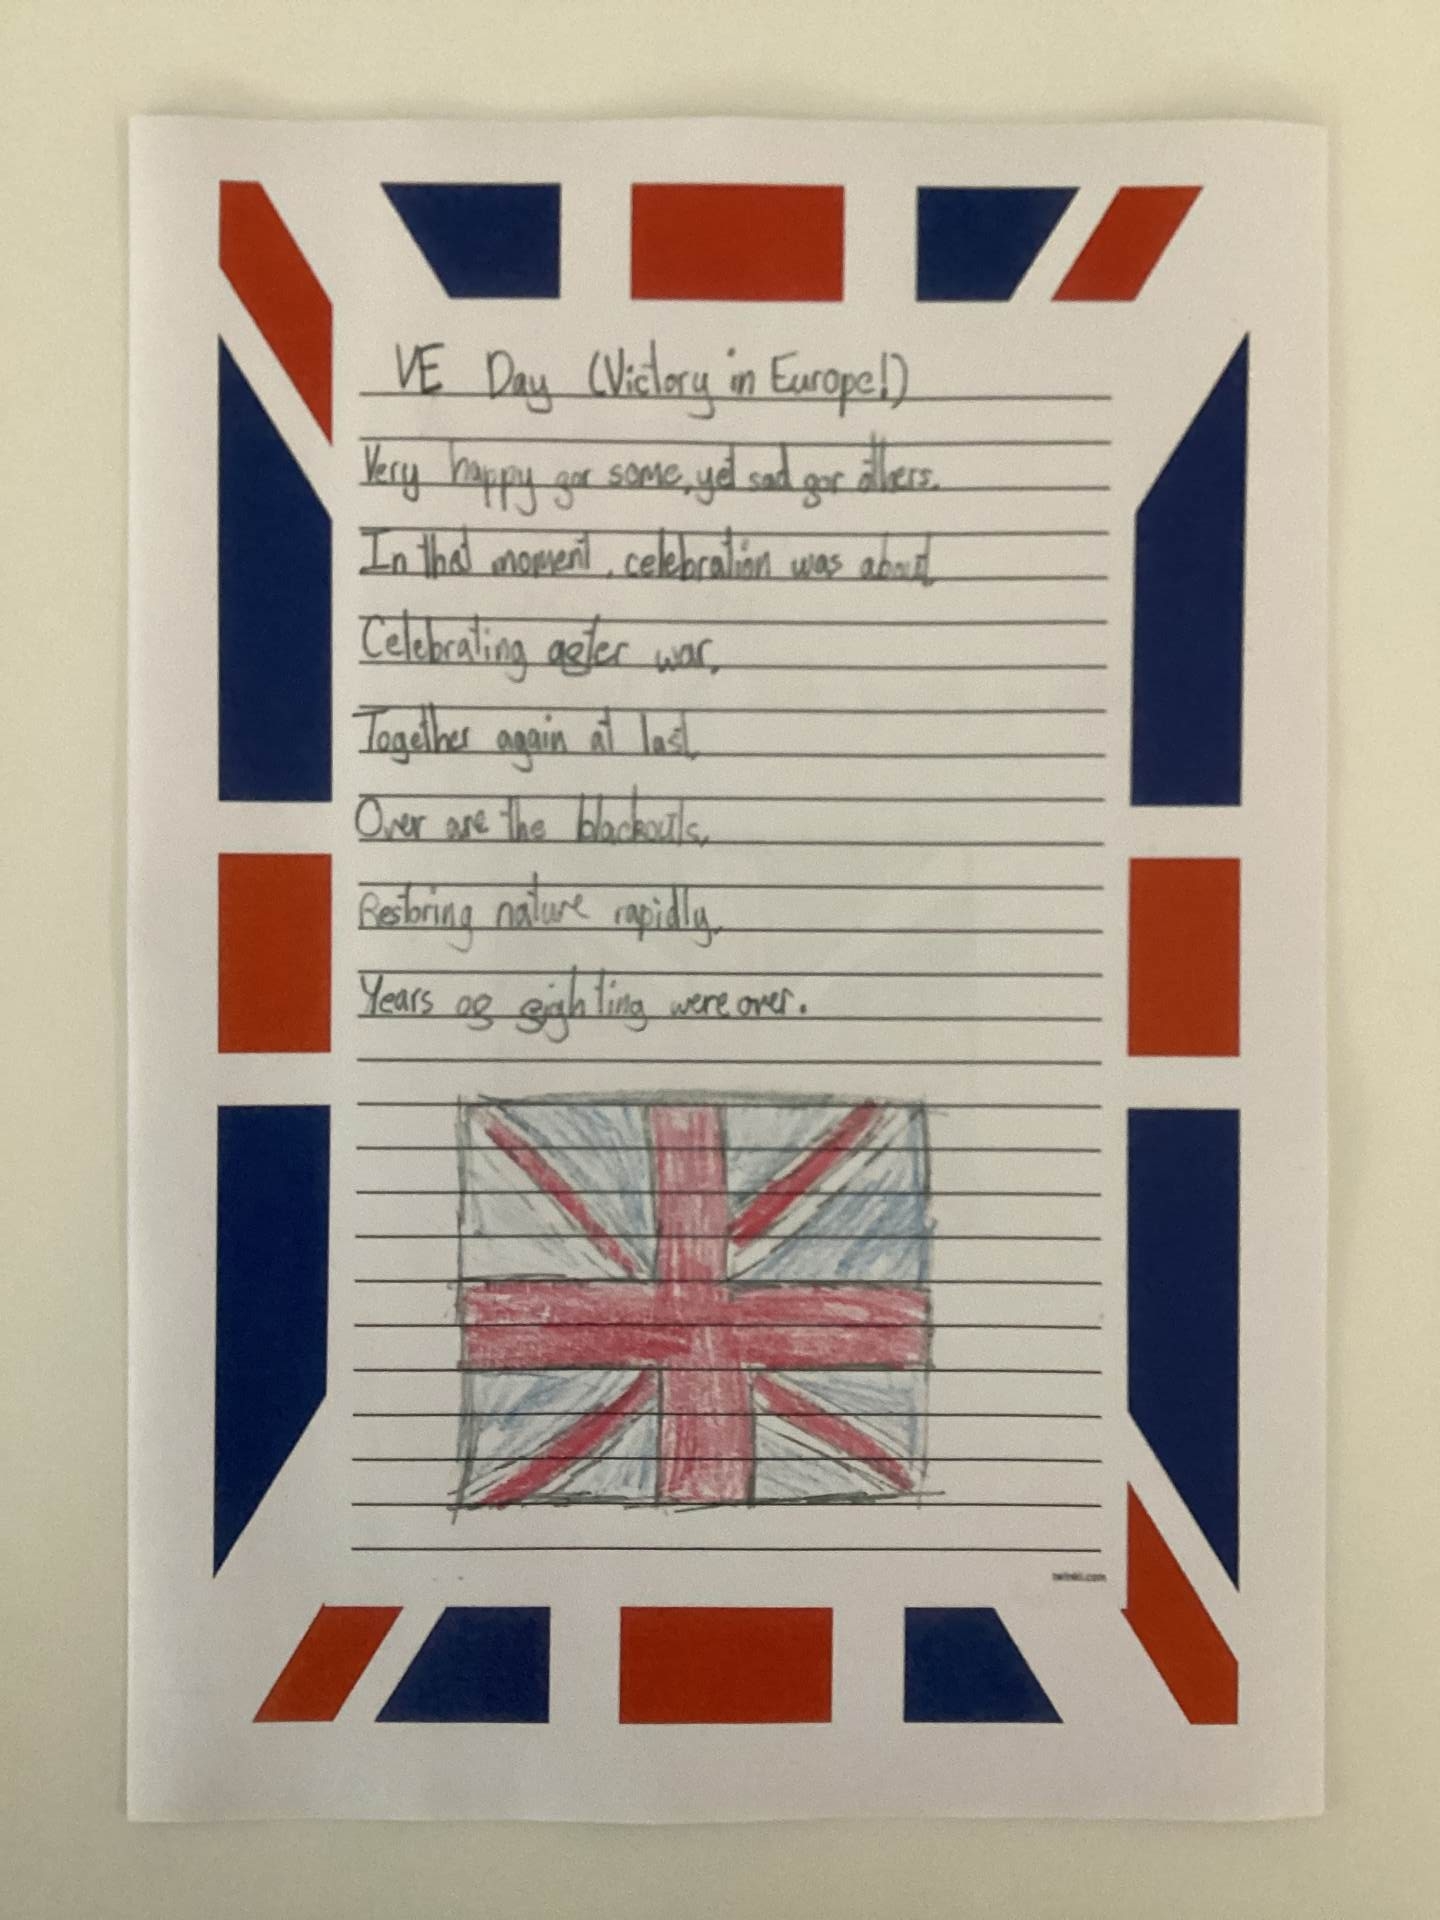 VE Day (Victory in Europe!)
Very happy for some, yet sad for others.
In that moment, celebration was about
Celebrating after war.
Together again at last
Over are the blackouts,
Restoring nature rapidly,
Years of fighting were over.
twinkl.com